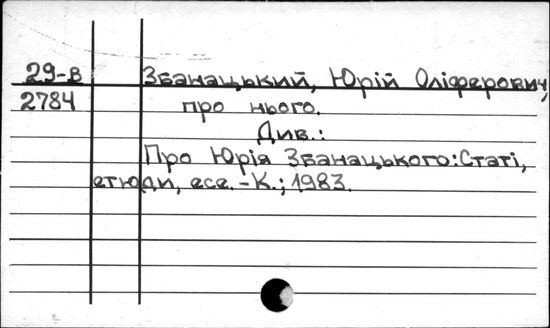 29-в Збанацький, Юрій Оліферович,
2784 про нього.
Див.:
Про Юрія Збанацького: Статі,
етюди, есе. - К.; 1983.